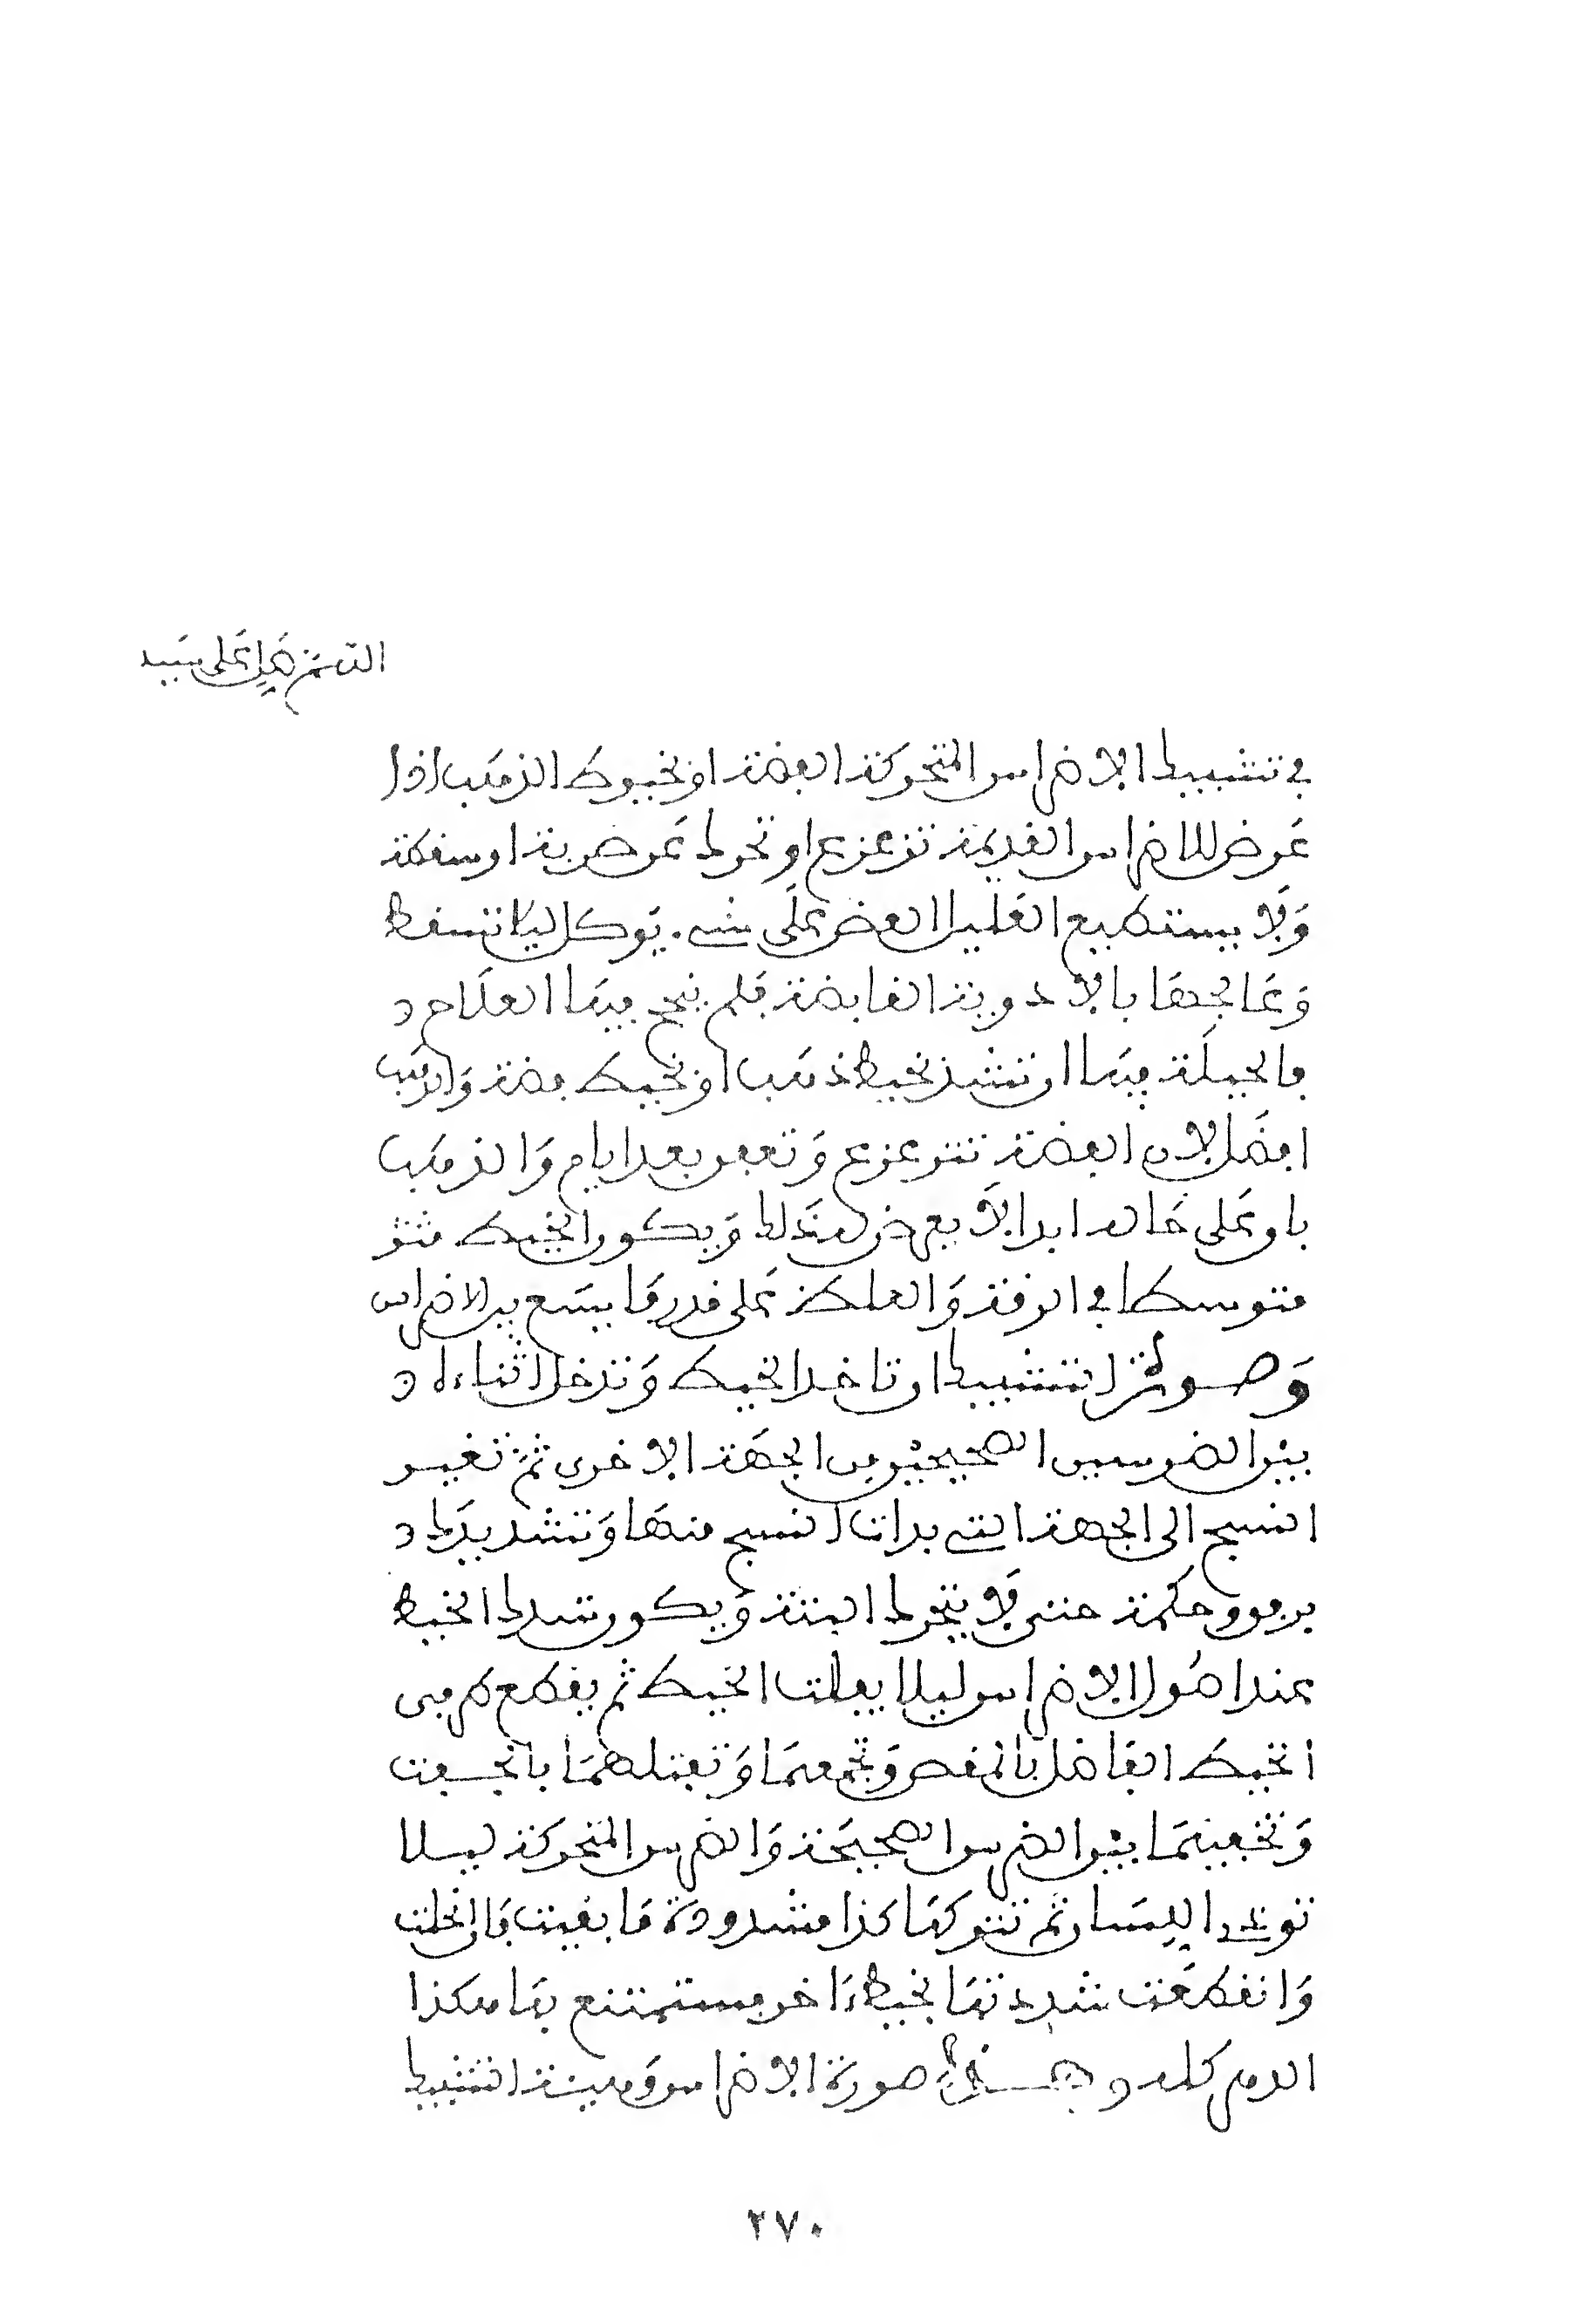 اللهم صل على سيد
في تشبيك الاضراس المتحركة الفضة او بخيوط الذهب اذا
عرض للاضراس القديمة تزعزع او تحرك عن ضربة او سقطة
ولا يستطيع العليل العض على شيء يوكل ليلا تسقط
وعالجتها بالادوية القابضة فلم ينجح فيها العلاج
فالحيلة فيها ان تشد بخيط ذهب او بخيط فضة والذهب
افضل لان الفضة تتزعزع وتعفن بعد ايام والذهب
باق على حاله ابدا لا يعرض له ذلك ويكون الخيط
متوسطا في الرقة والغلظ على قدر ما يسع بين الاضراس
وصورة التشبيك ان تاخذ الخيط وتدخل اثناءه
بين الضرسين الصحيحين من الجهة الاخرى ثم تعيد
النسج الى الجهة التي بدات النسج منها وتشد يدك
برفق وحكمة حتى لا يتحرك البتة ويكون شدك الخيط
عند اصول الاضراس ليلا يفلت الخيط ثم يقطع طرفي
الخيط الفاضل بالمقص وتجمعهما وتفتلهما بالجفت
وتخفيهما بين الضرس الصحيحة والضرس المتحركة ليلا
توذي اللسان ثم تتركها كذا مشدودة ما بقيت فان انحلت
وانقطعت شددتها بخيط ءاخر فيستمتع بها هكذا
الدهر كله وهذه صورة الاضراس وهيئة التشبيك
٢٧٠